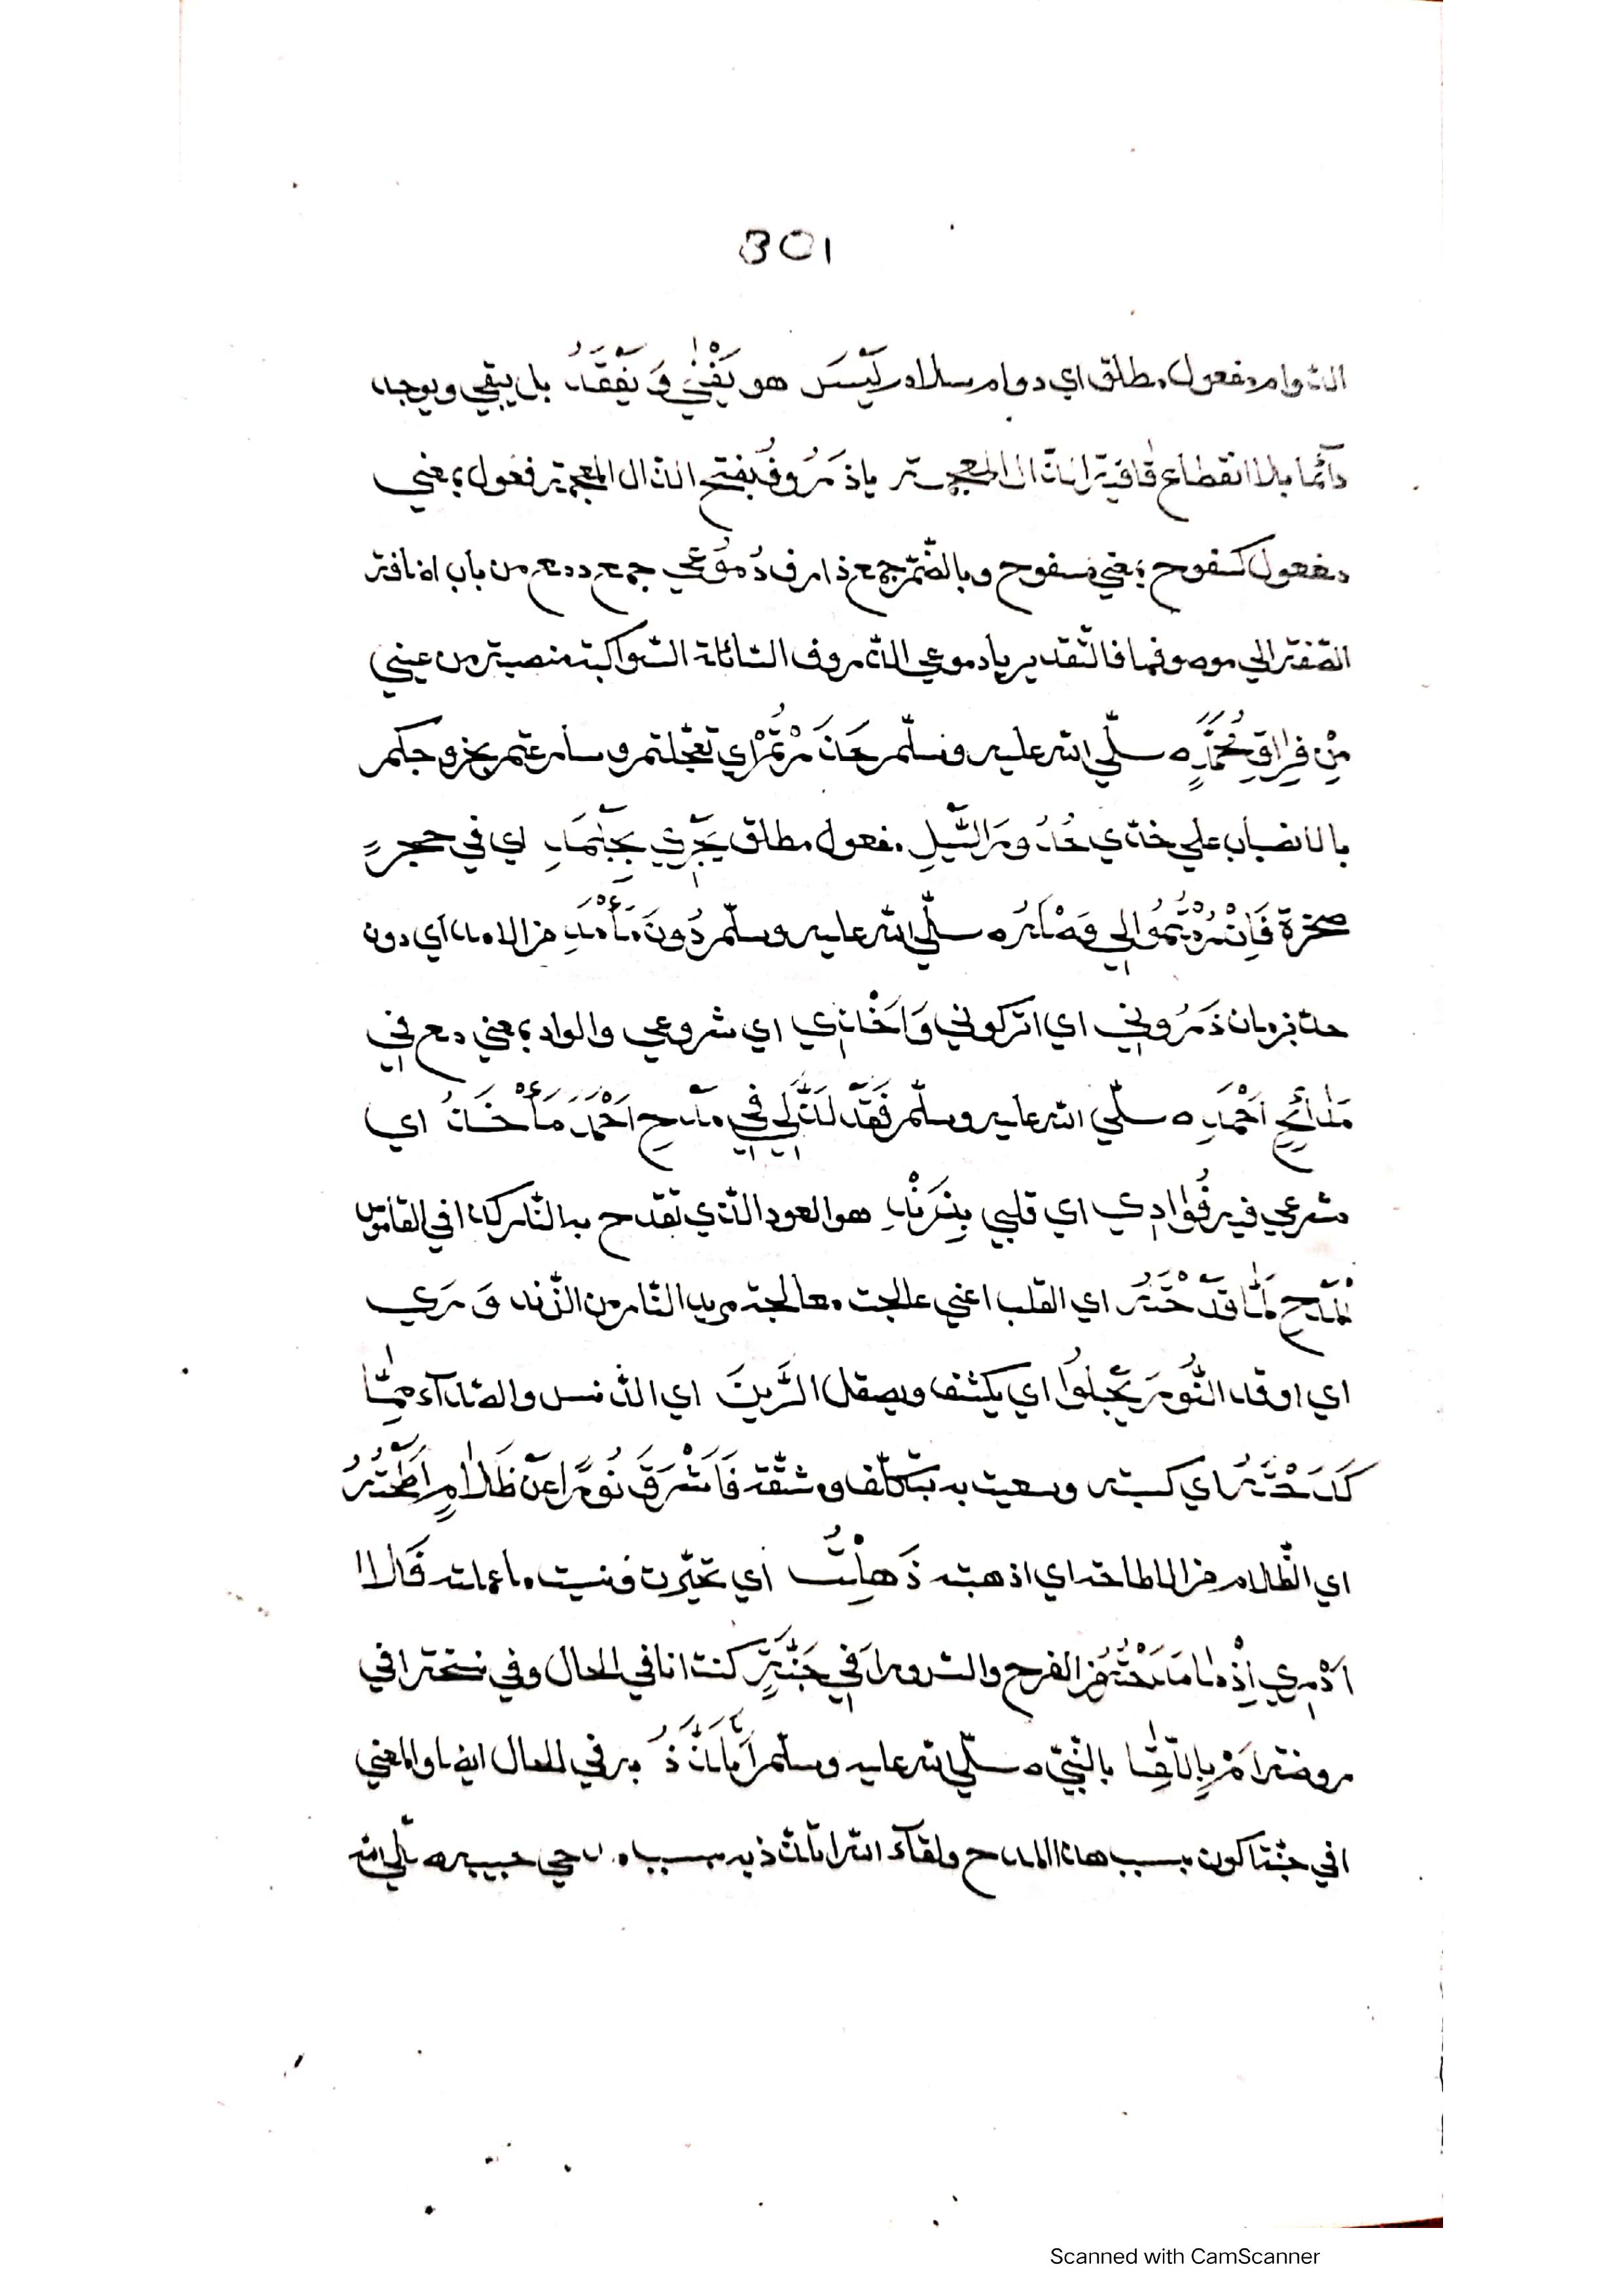 301
الدّوام مفعول مطلق اي دوام سلام لَيْسَ هو يَفْنٰي وَ يُفْقَدُ بل يبقي ويوجد
دآئما بلا انقطاع قافية الذّال المعجمة يا ذَرُوفُ بفتح الذال المعجمة فعول بمعني
مفعول كسفوح بمعني مسفوح وبالضّمّ جمع ذارف دُمُوعِي جمع دمع من باب اضافة
الصّفة الي موصوفها فالتّقدير يا دموعي الذّروف السّائلة السّواكبة منصبة من عيني
مِنْ فِرَاقِ مُحَمَّدٍ ه صلّي الله عليه وسلّم حَذَرْتُمْ اي تعجّلتم وسارعتم بخروجكم
بالانصباب علي خدّي حُدُورَ السَّيْلِ مفعول مطلق يَجْرِي بِجَلْمَدِ اي في حجر
صخرة فَاِنْ رُمْتُمُوا اِلي وَصْلَهُ ه صلّي الله عليه وسلّم دُونَ مَأْمَدِ من الامد اي دون
حدّ زمان ذَرُونِي اي اتركوني وَاَخْذِي اي شروعي والواو بمعني مع فِي
مَدَائِحِ اَحْمَدِ ه صلّي الله عليه وسلّم فَقَدْ لَذَّ لِي فِي مَدْحِ اَحْمَدَ مَأْخَذُ اي
مشرعي فيه فُؤَادِي اي قلبي بِزَنْدِ هو العود الّذي تقدح به النّار كذا في القاموس
الْمَدْحِ لَمَّا قَدَحْتَهُ اي القلب اعني عالجت معالجة مريد النّار من الزّند وَرَي
اي اوقد النُّورَ يَجْلُوا اي يكشف ويصقل الرَّيْنَ اي الدّنس والصّدآء مِمَّا
كَدَحْتُهُ اي كسبته وسعيت به بتكلّف ومشقّة فَاَشْرَقَ نُورًا عَنْ ظَلَامٍ اَطَحْتُهُ
اي الظّلام من الاطاحة اي اذهبته ذَهِلْتُ اي تحيّرت ونسيت ما عملته فَلَا
اَدْرِي اِذْ مَا مَدَحْتُهُ من الفرح والسّرور اَفِي جَنَّةٍ كنت انا في الحال وفي نسخة افي
روضة اَمْ بِاللِّقَا بالنّبيّ ه صلّي الله عليه وسلّم اَتَلَذَّذُ به في الحال ايضا والمعني
افي جنّة اكون بسبب هذا المدح ولقآء الله اتلذّذ به بسبب مدحي حبيبه صلّي الله
Scanned with CamScanner